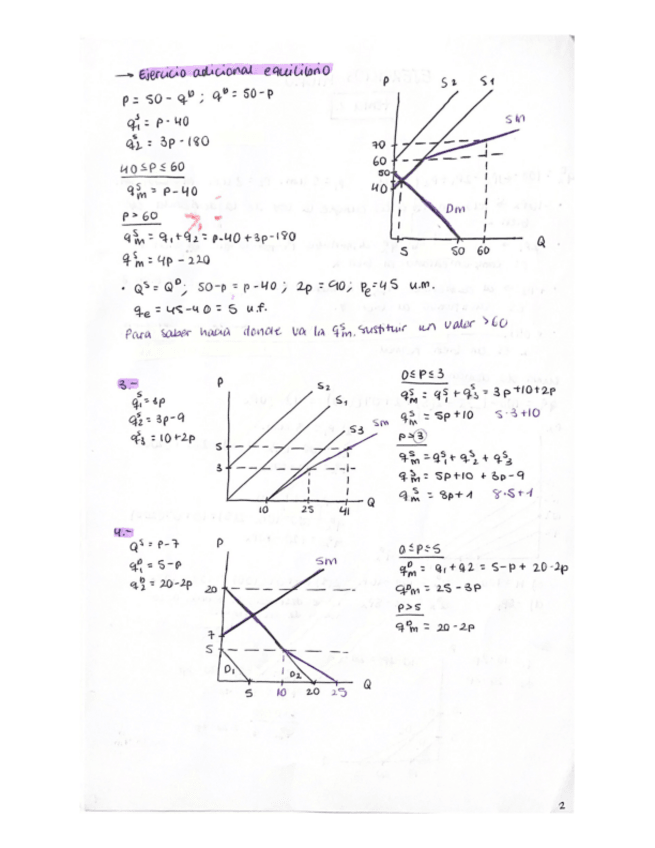 → Ejercicio adicional equilibrio
P = 50 - qᴰ ; qᴰ = 50 - P
q₁ˢ = P - 40
q₂ˢ = 3p - 180
40 ≤ P ≤ 60
qₘˢ = P - 40
P > 60
qₘˢ = q₁ + q₂ = p - 40 + 3p - 180
qₘˢ = 4p - 220
· Qˢ = Qᴰ; 50 - p = p - 40 ; 2p = 90; Pe = 45 u.m.
qe = 45 - 40 = 5 u.f.
Para saber hacia donde va la qₘˢ. sustituir un valor > 60
P
S2
S1
Sm
70
60
50
40
Dm
5
50
60
Q
3.-
q₁ˢ = 3p
q₂ˢ = 3p - 9
q₃ˢ = 10 + 2p
P
S2
S1
S3
Sm
5
3
10
25
41
Q
0 ≤ P ≤ 3
qₘˢ = q₁ˢ + q₃ˢ = 3p + 10 + 2p
qₘˢ = 5p + 10 5·3+10
p > 3
qₘˢ = q₁ˢ + q₂ˢ + q₃ˢ
qₘˢ = 5p + 10 + 3p - 9
qₘˢ = 8p + 1 8·5+1
4.-
Qˢ = P - 7
q₁ᴰ = 5 - p
q₂ᴰ = 20 - 2p
P
Sm
20
7
5
D1
D2
5
10
20
25
Q
0 ≤ P ≤ 5
qₘᴰ = q1 + q2 = 5 - p + 20 - 2p
qᴰₘ = 25 - 3p
P > 5
qₘᴰ = 20 - 2p
2